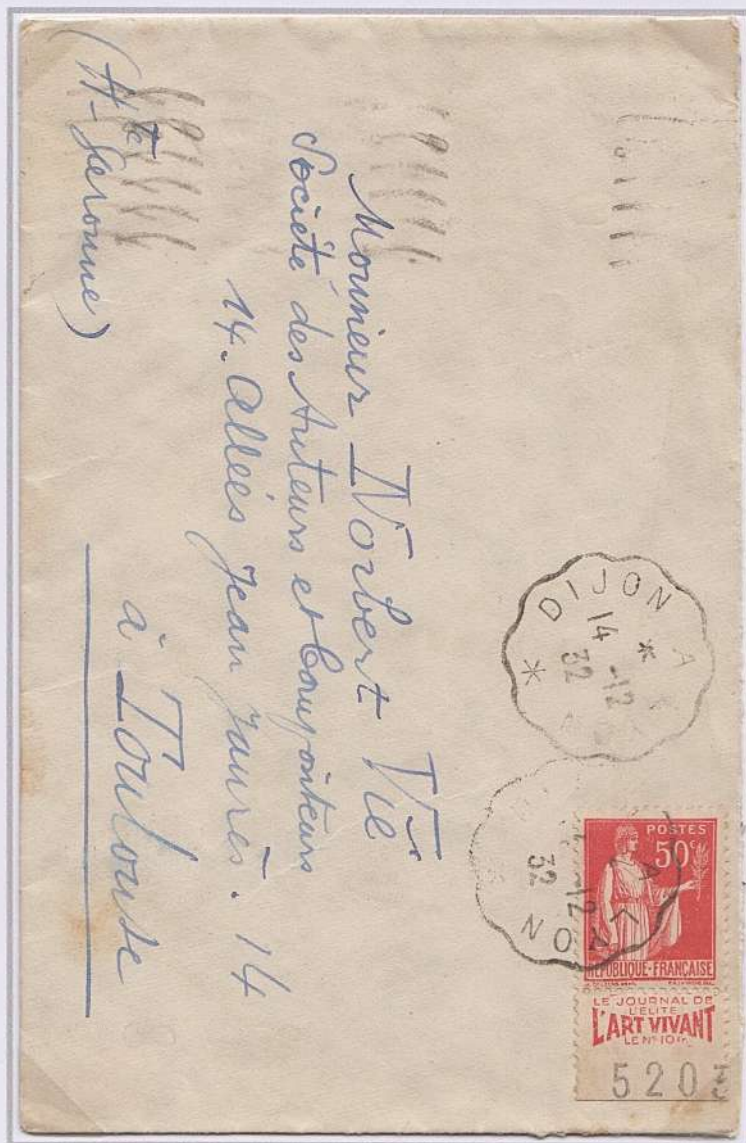 Monsieur Norbert Vié
Société des Auteurs et Compositeurs
14. Allées Jean Jaurès. 14
à Toulouse
(Hte Garonne)
DIJON A
14 -12
32
-12
32
LYON
POSTES
50c
RÉPUBLIQUE-FRANÇAISE
LE JOURNAL DE
L'ÉLITE
L'ART VIVANT
LE No 10fr.
5203